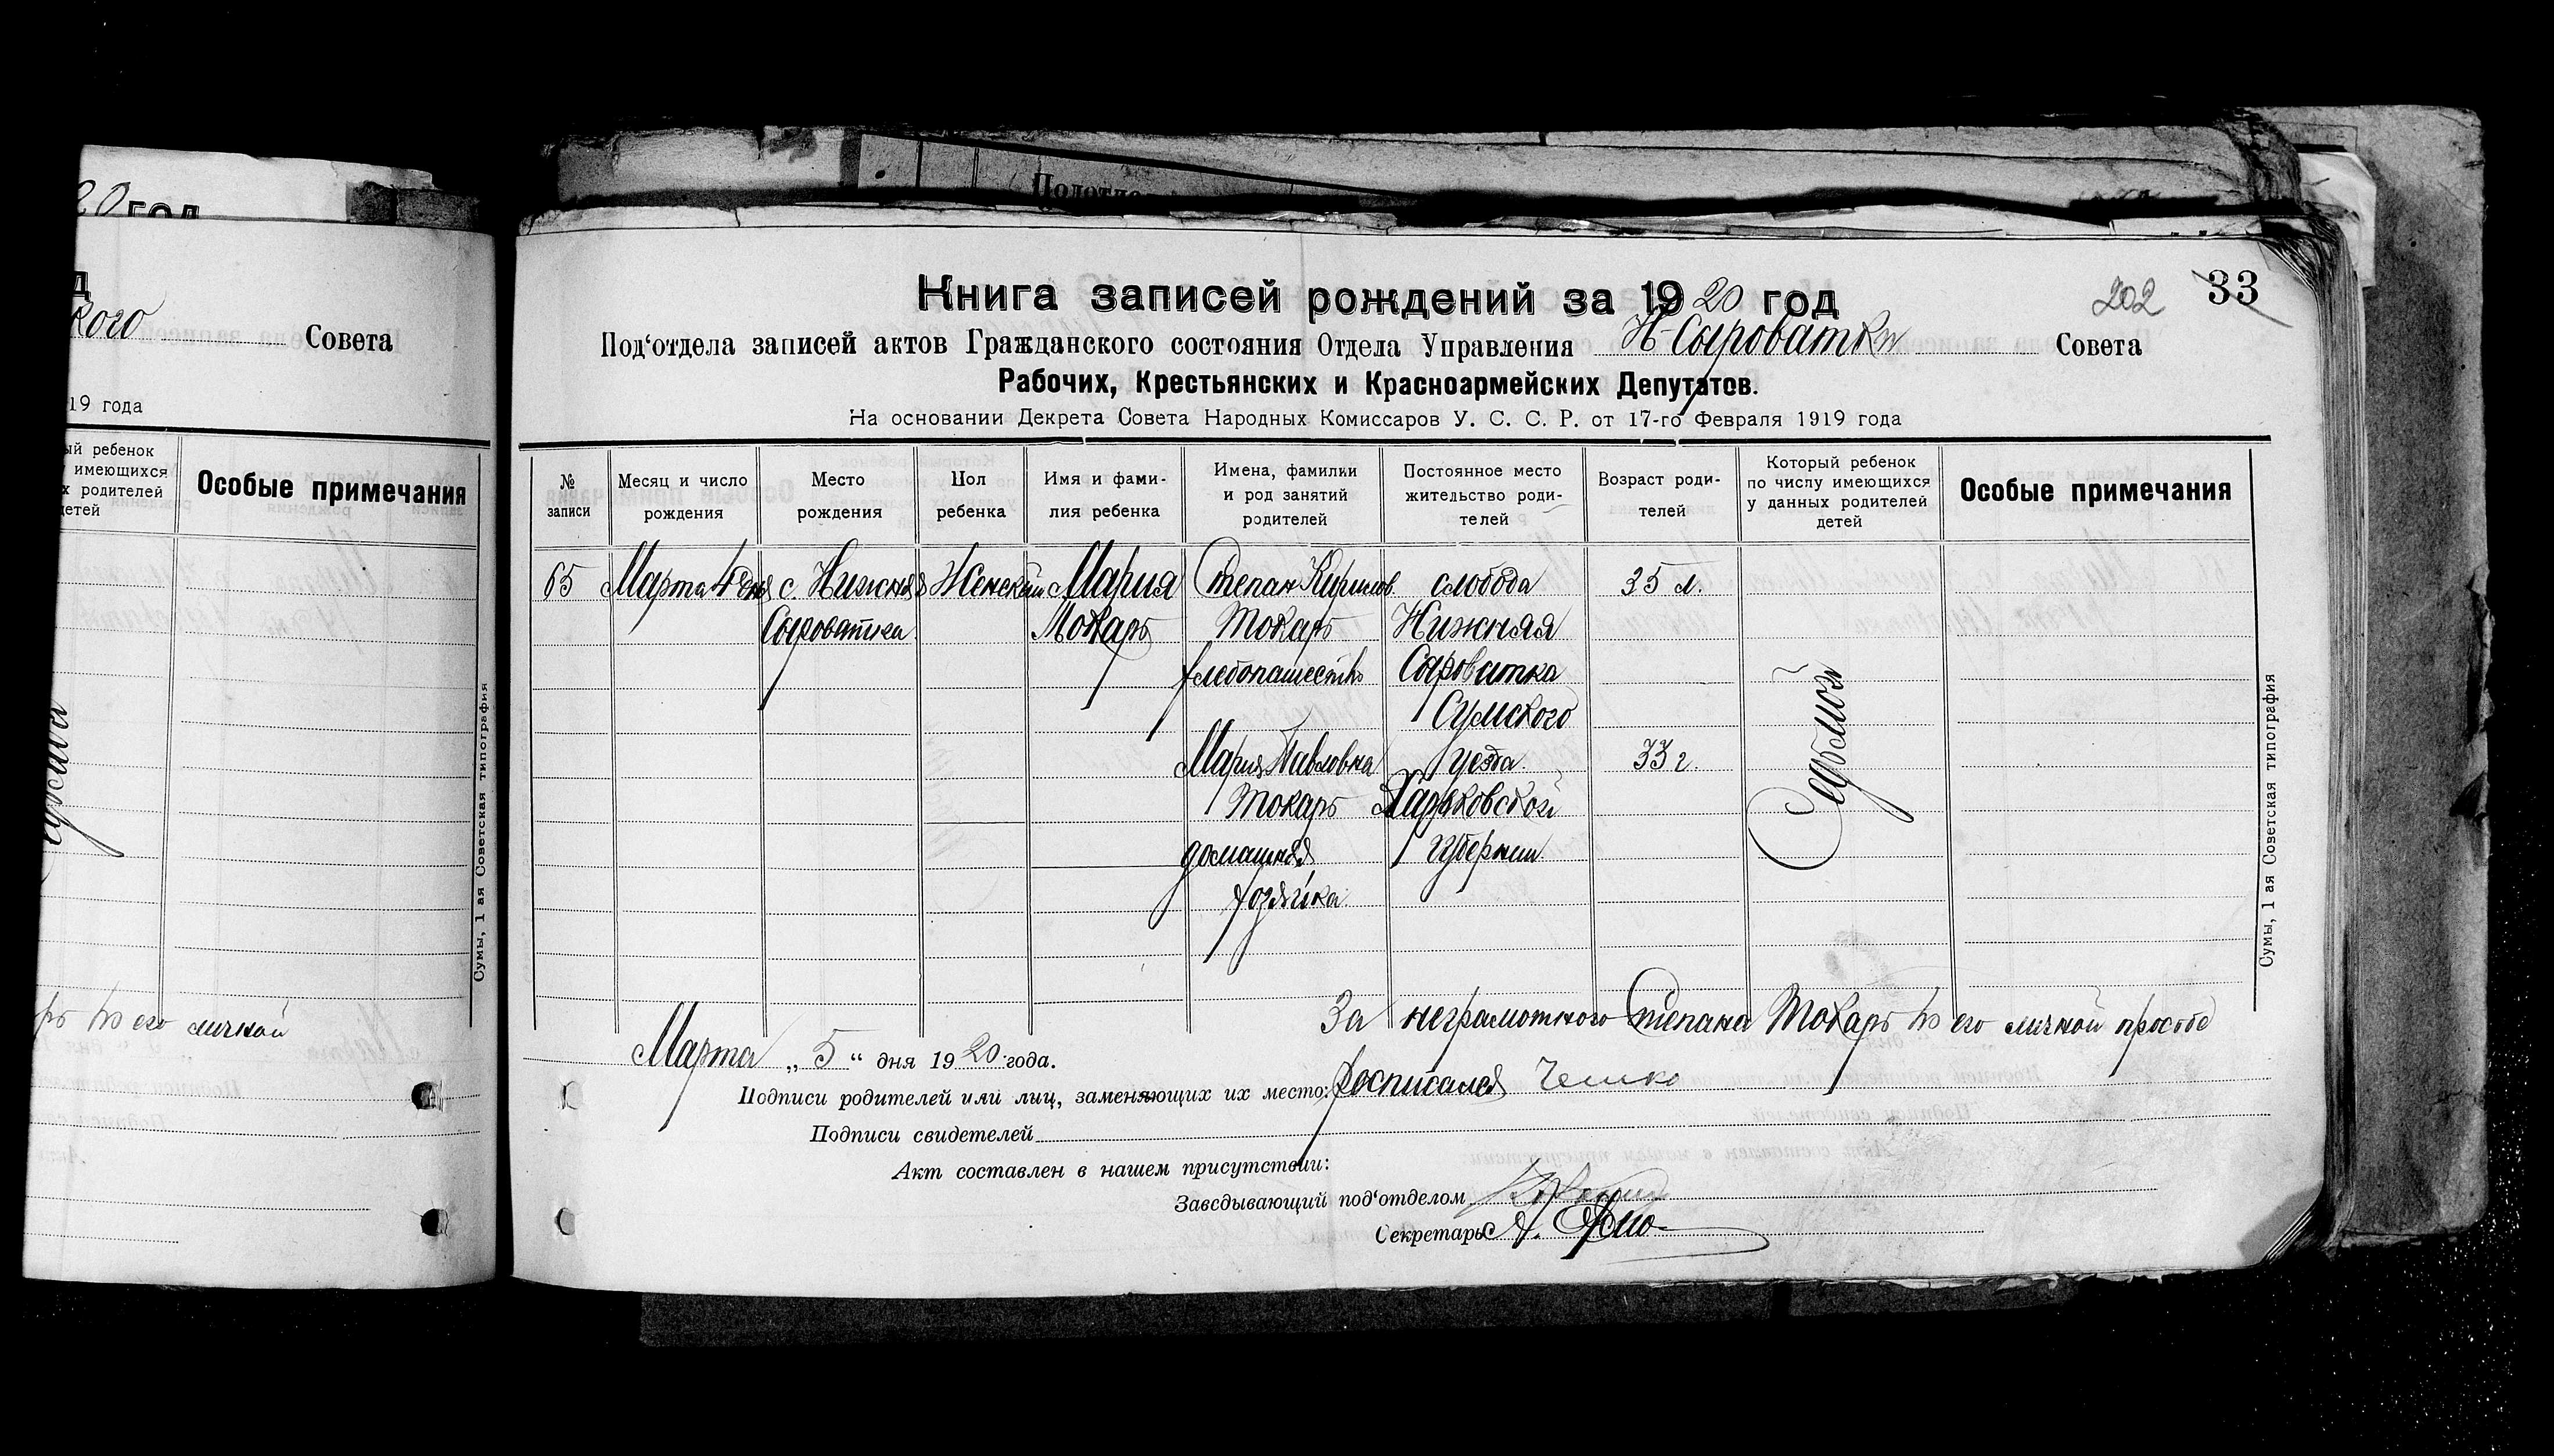 20 год
кого Совета
19 года
ый ребенок
имеющихся
х родителей
детей
Особые примечания
Сумы, 1 ая Советская типография
рь по его личной
202 33
Книга записей рождений за 1920 год
Под‘отдела записей актов Гражданского состояния Отдела Управления Н-Сыроватки Совета
Рабочих, Крестьянских и Красноармейских Депутатов.
На основании Декрета Совета Народных Комиссаров У. С. С. Р. от 17-го Февраля 1919 года
№ записи
Месяц и число рождения
Место рождения
Пол ребенка
Имя и фами-
лия ребенка
Имена, фамилии
и род занятий
родителей
Постоянное место
жительство роди-
телей
Возраст роди-
телей
Который ребенок
по числу имеющихся
у данных родителей
детей
Особые примечания
65 Марта 4 дня с. Нижняя Женский Мария Степан Кирилов. слобода 35 л.
Сыроватка Токарь Токарь Нижняя
хлебопашество Сыроватка
Сумского
Мария Павловна уезда 33 г. Седьмой
Токарь Харьковской
домашняя губернии
хозяйка
За неграмотного Степана Токарь по его личной просьбе
Марта „ 5 “ дня 1920 года.
Подписи родителей или лиц, заменяющих их место: росписался Чешко
Подписи свидетелей
Акт составлен в нашем присутствии:
Заведывающий под‘отделом
Секретарь
Сумы, 1 ая Советская типография